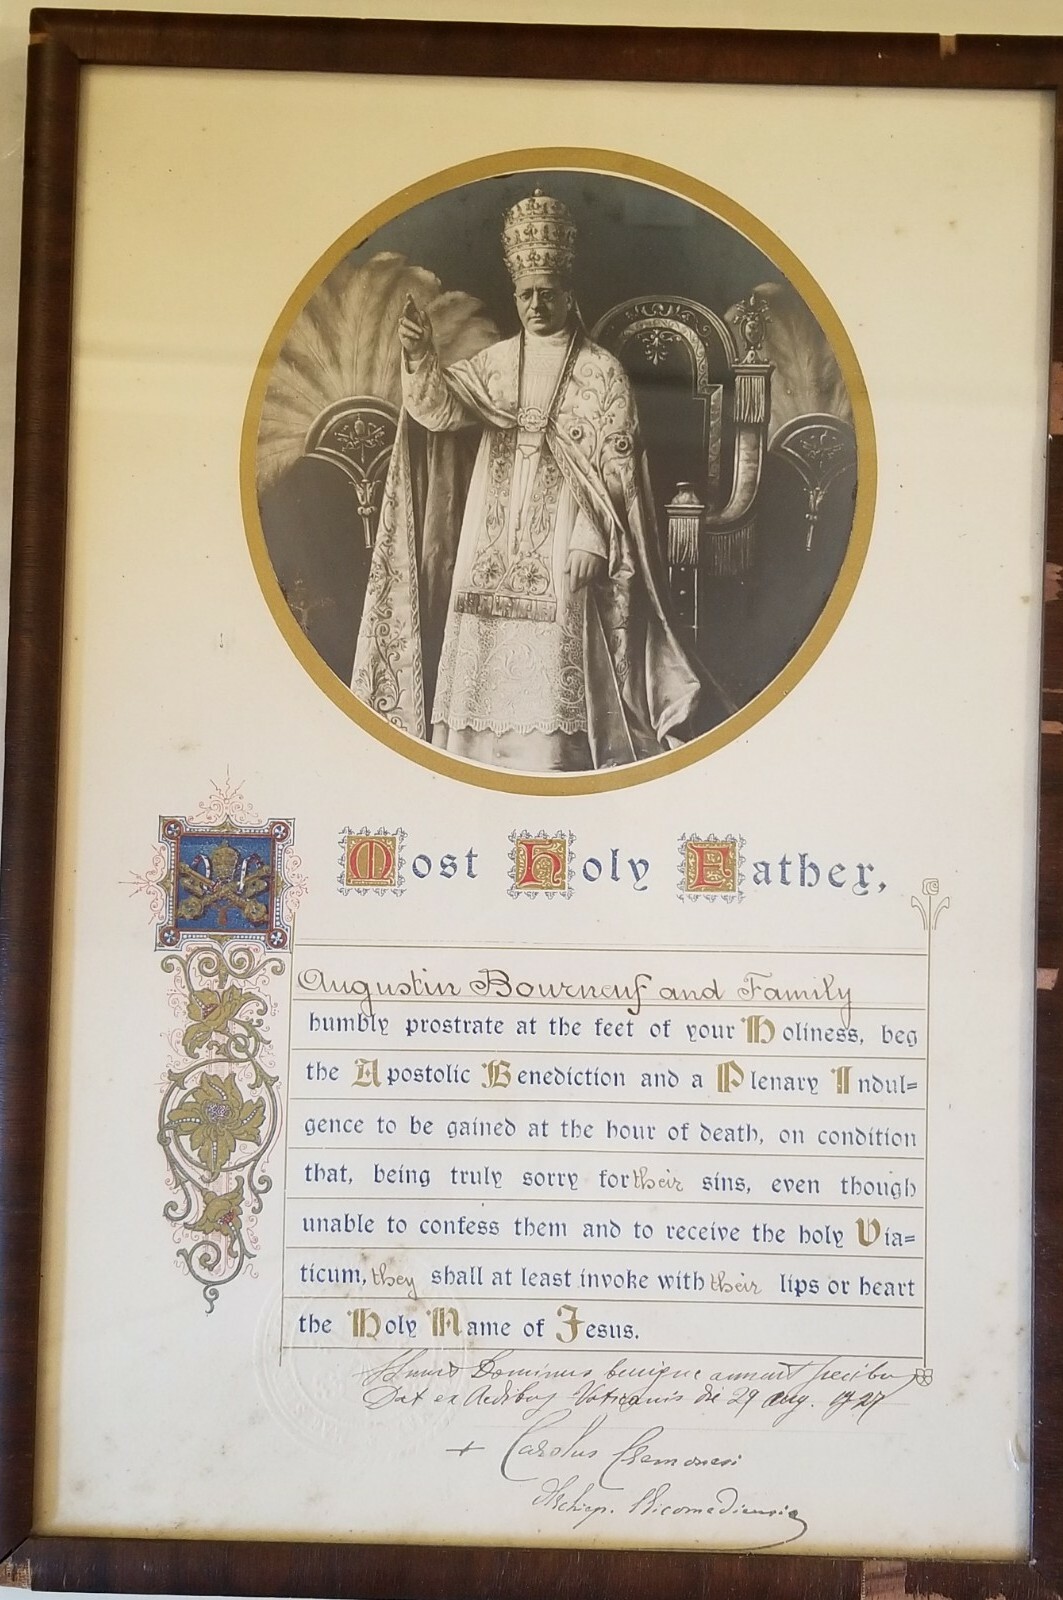 Most Holy Father,
Augustin Bourneuf and Family
humbly prostrate at the feet of your Holiness, beg
the Apostolic Benediction and a Plenary Indul=
gence to be gained at the hour of death, on condition
that, being truly sorry for their sins, even though
unable to confess them and to receive the holy Via=
ticum, they shall at least invoke with their lips or heart
the Holy Name of Jesus.
Dominus benigne annuit precibus
Dat ex Aedibus Vaticanis die 29 aug. 1927
+ Carolus Cremonesi
Archiep. Nicomediensis